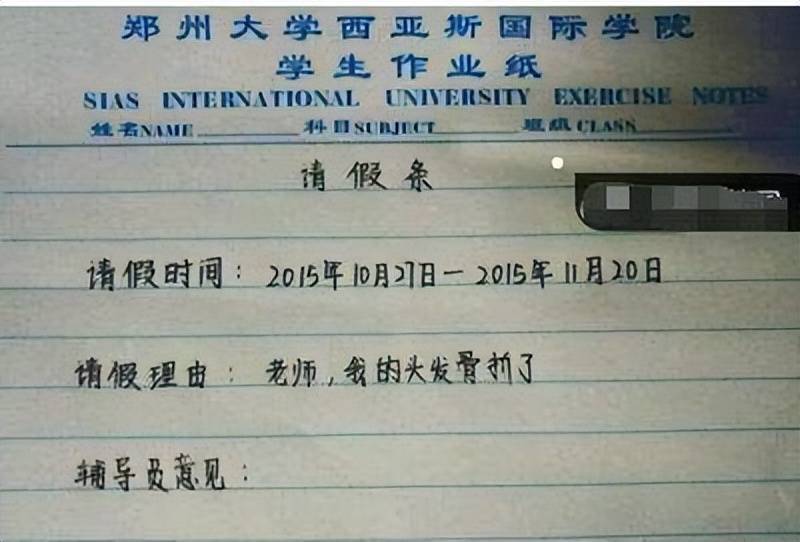 郑州大学西亚斯国际学院
学生作业纸
SIAS INTERNATIONAL UNIVERSITY EXERCISE NOTES
姓名NAME 科目SUBJECT 班级CLASS
请假条
请假时间：2015年10月27日—2015年11月20日
请假理由：老师,我的头发骨折了
辅导员意见：